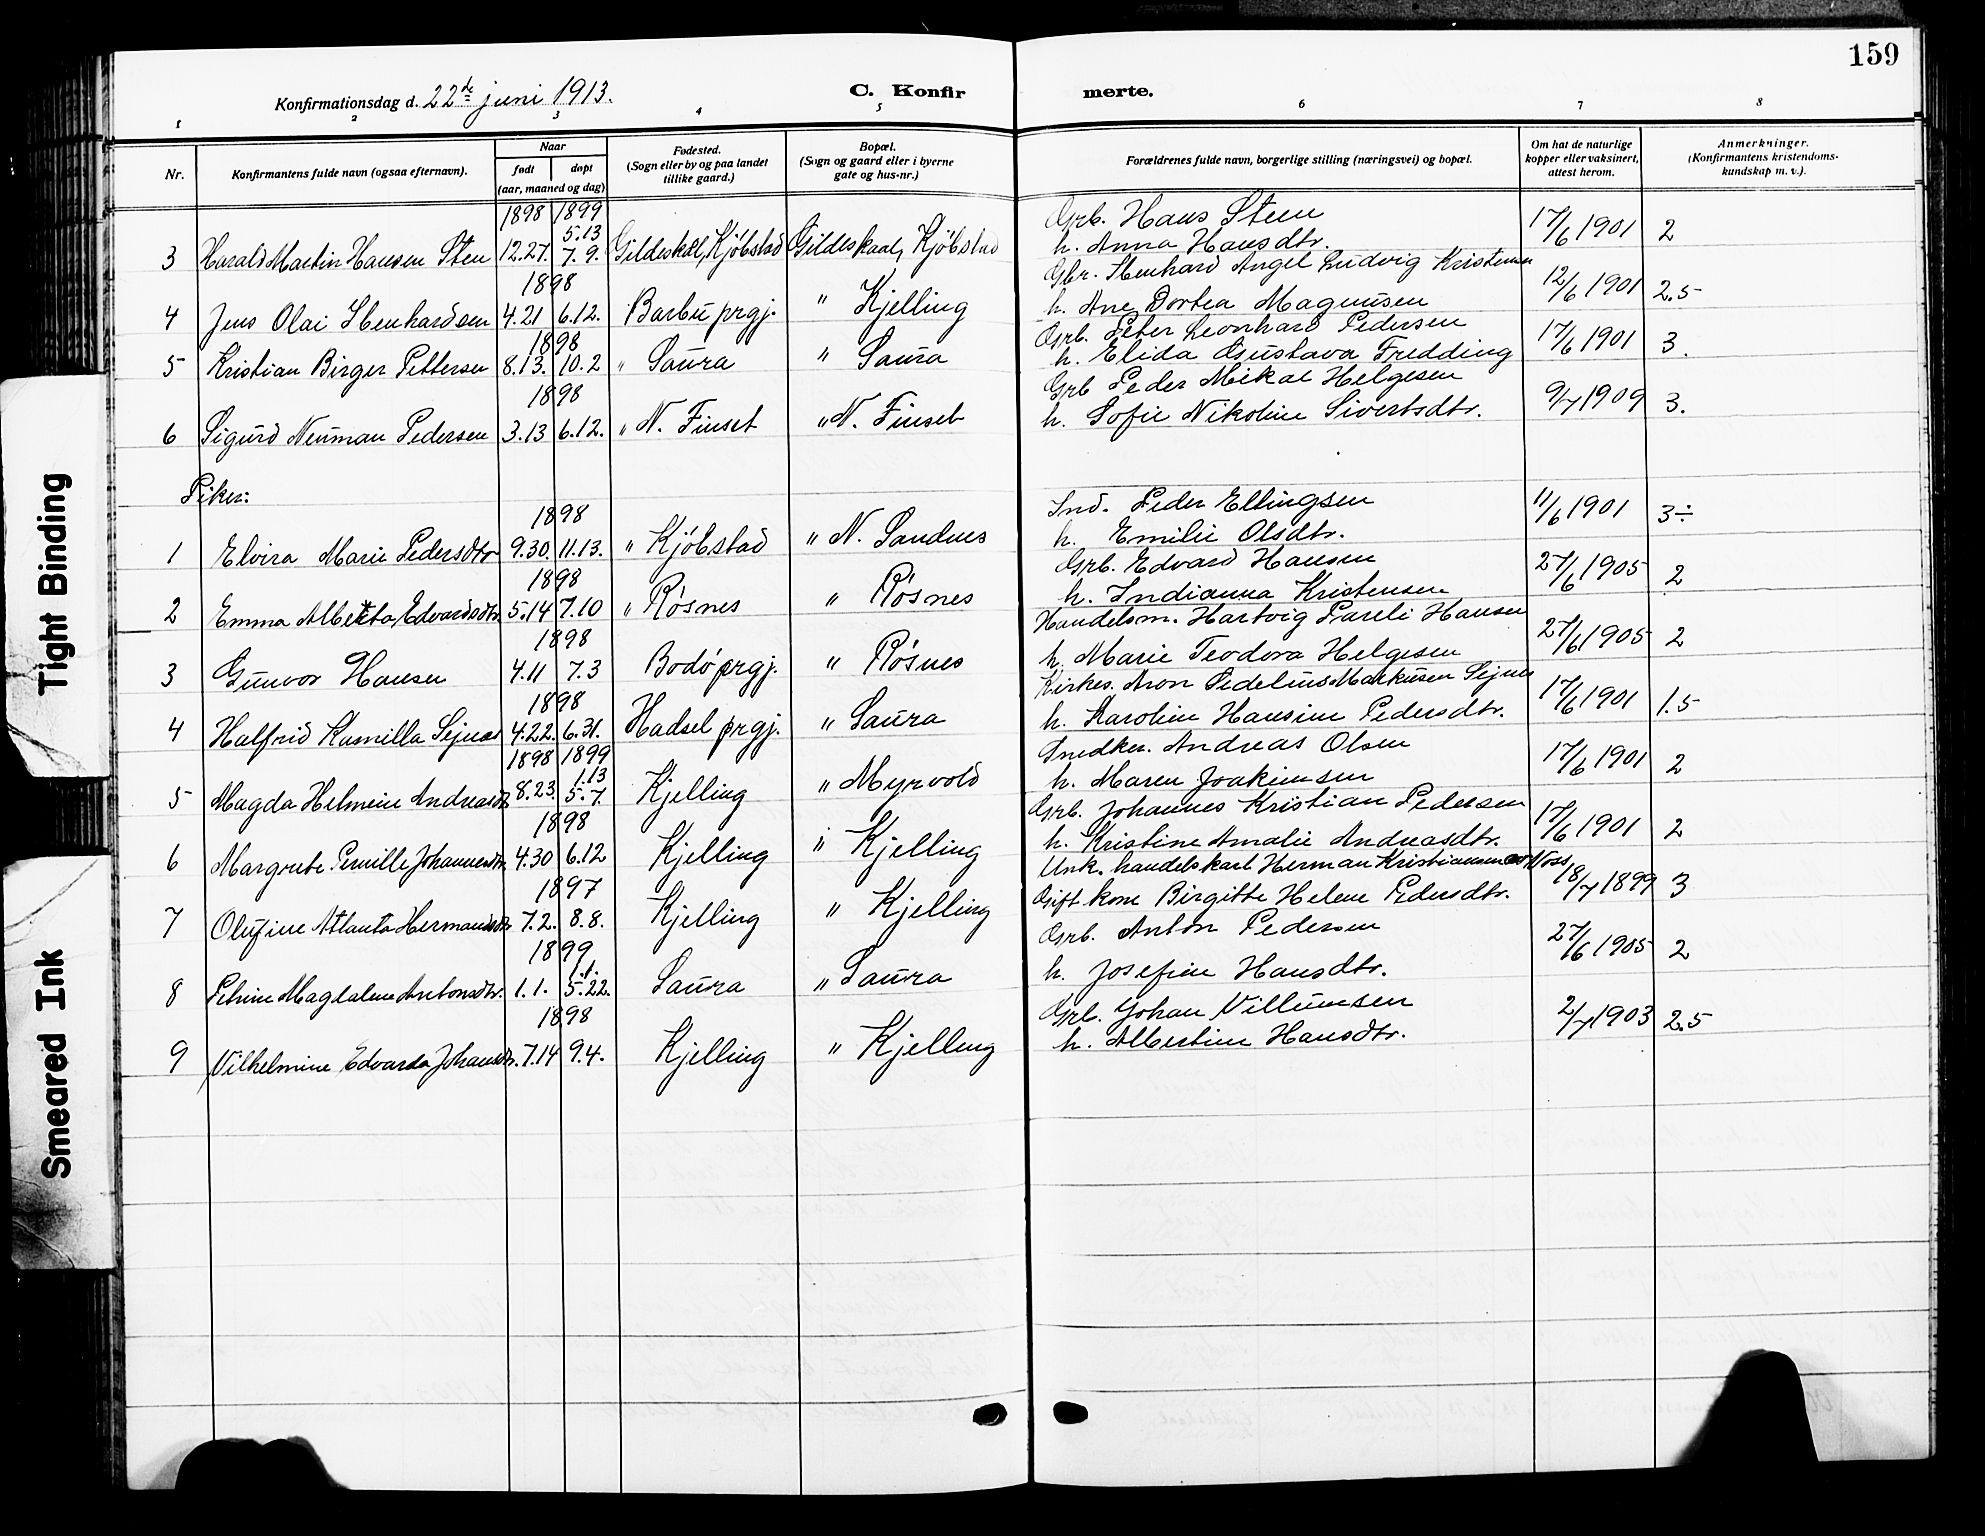 159
Konfirmationsdag d. 22de juni 1913.
C. Konfirmerte.
1 2 3 4 5 6 7 8
Nr. Konfirmantens fulde navn (ogsaa efternavn). Naar født døpt (aar, maaned og dag) Fødested. (Sogn eller by og paa landet tillike gaard.) Bopæl. (Sogn og gaard eller i byerne gate og hus-nr.) Forældrenes fulde navn, borgerlige stilling (næringsvei) og bopæl. Om hat de naturlige kopper eller vaksinert, attest herom. Anmerkninger. (Konfirmantens kristendoms-kundskap m. v.).
1898 1899 Grb. Hans Steen
5.13
3 Harald Martin Hansen Sten 12.27. 7.9. Gildeskål, Kjøbstad Gildeskaal, Kjøbstad h. Anna Hansdtr. 17/6 1901 2
1898 Gbr. Stenhard Angel Ludvig Kristensen
4 Jens Olai Stenhardsen 4.21 6.12. Barbu prgj. " Kjelling h. Ane Dortea Magnusen 12/6 1901 2.5
1898 Grb. Peter Leonhard Pedersen
5 Kristian Birger Pettersen 8.13. 10.2 " Saura " Saura h. Elida Gustava Fredding 17/6 1901 3.
1898 Grb Peder Mikal Helgesen
6 Sigurd Neuman Pedersen 3.13 6.12. " N. Finset " N. Finset h. Sofie Nikoline Sivertsdtr. 9/7 1909 3.
Piker:
1898 Ind. Peder Ellingsen
1 Elvira Marie Pedersdtr 9.30. 11.13. " Kjøbstad " N. Sandnes h. Emilie Olsdtr. 11/6 1901 3÷
1898 Grb. Edvard Hansen
2 Emma Alberta Edvardsdtr. 5.14 7.10 " Røsnes " Røsnes h. Indianna Kristensen 27/6 1905 2
1898 Handelsm. Hartvig Pareli Hansen
3 Gunvor Hansen 4.11 7.3 Bodø prgj. " Røsnes h. Marie Teodora Helgesen 27/6 1905 2
1898 Kirkes. Aron Pedelius Markusen Sejnæs
4 Halfrid Kamilla Sejnæs 4.22. 6.31. Hadsel prgj. " Saura h. Karoline Hansine Pedersdtr. 17/6 1901 1.5
1898 1899 Snedker. Andreas Olsen
1.13
5 Magda Helmine Andreasdtr. 8.23. 5.7. Kjelling " Myrvold h. Maren Joakimsen 17/6 1901 2
1898 Grb. Johannes Kristian Pedersen
6 Margrete Pernille Johannesdtr. 4.30 6.12 Kjelling " Kjelling h. Kristine Amalie Andreasdtr. 17/6 1901 2
1897 Unk. handelskarl Herman Kristiansen av Voss
7 Olufine Atlanta Hermansdtr 7.2. 8.8. Kjelling " Kjelling Gift kone Birgitte Helene Pedersdtr. 18/7 1899 3
1899 Grb. Anton Pedersen
1.1.
8 Petrine Magdalene Antonsdtr. 1.1. 5.22. Saura " Saura h. Josefine Hansdtr. 27/6 1905 2
1898 Grb. Johan Villumsen
9 Vilhelmine Edvarda Johansdtr. 7.14 9.4. Kjelling " Kjelling h. Albertine Hansdtr. 2/7 1903 2.5
Tight Binding
Smeared Ink